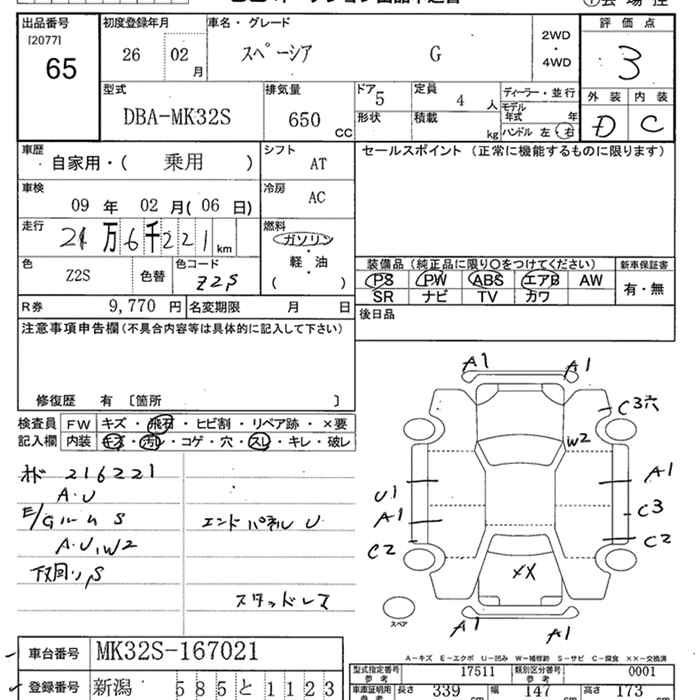 出品番号 初度登録年月 車名・グレード 評価点
[2077]
65 26 02月 スペーシア G 2WD・4WD 3
型式 排気量 ドア 定員 ディーラー・並行 外装 内装
DBA-MK32S 650cc 5 4人 モデル年式 年 D C
形状 積載 kg ハンドル 左・右
車歴 シフト セールスポイント(正常に機能するものに限ります)
自家用・( 乗用 ) AT
車検 冷房
09年 02月(06日) AC
走行 燃料
21万6千221km ガソリン・軽油
( )
色 色替 色コード 装備品(純正品に限り○をつけてください) 新車保証書
Z2S Z2S PS PW ABS エアB AW 有・無
SR ナビ TV カワ
R券 9,770円 名変期限 月 日 後日品
注意事項申告欄(不具合内容等は具体的に記入して下さい)
修復歴 有 〔箇所 〕
検査員 FW キズ・飛石・ヒビ割・リペア跡・×要
記入欄 内装 キズ・汚れ・コゲ・穴・スレ・キレ・破レ
A1 A1
C3穴
W2
U1 A1
A1 C3
C2 C2
XX
スペア
A1 A1
216221
A・U
S エンドパネル U
A・U,W2
下回り,S
スタッドレス
A-キズ E-エクボ U-凹み W-補修跡 S-サビ C-腐食 ××-交換済
車台番号 MK32S-167021
型式指定番号 参考 17511 類別区分番号 参考 0001
登録番号 新潟 585 と 1123
車庫証明用 参考 長さ 339 cm 幅 147 cm 高さ 173 cm